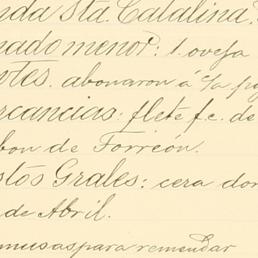 nda Sta. Catalina.
nado menor: 1. oveja
tes. abonaron á c/a
rcancias: flete f.c. de
bon de Torreón.
stos Grales: cera don
de Abril.
musas para remendar